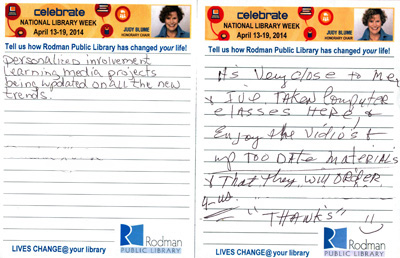 celebrate
NATIONAL LIBRARY WEEK
April 13-19, 2014
JUDY BLUME
HONORARY CHAIR
Tell us how Rodman Public Library has changed your life!
personalized involvement
learning media projects
being updated on all the new
trends.
Rodman
PUBLIC LIBRARY
LIVES CHANGE@your library
celebrate
NATIONAL LIBRARY WEEK
April 13-19, 2014
JUDY BLUME
HONORARY CHAIR
Tell us how Rodman Public Library has changed your life!
It's Very close to me,
& I've TAKEN Computer
classes Here, &
Enjoy the Vidio's &
up TOO DATE MATERIALS
& That they will ORDER
4 us.
"THANKS"
Rodman
PUBLIC LIBRARY
LIVES CHANGE@your library